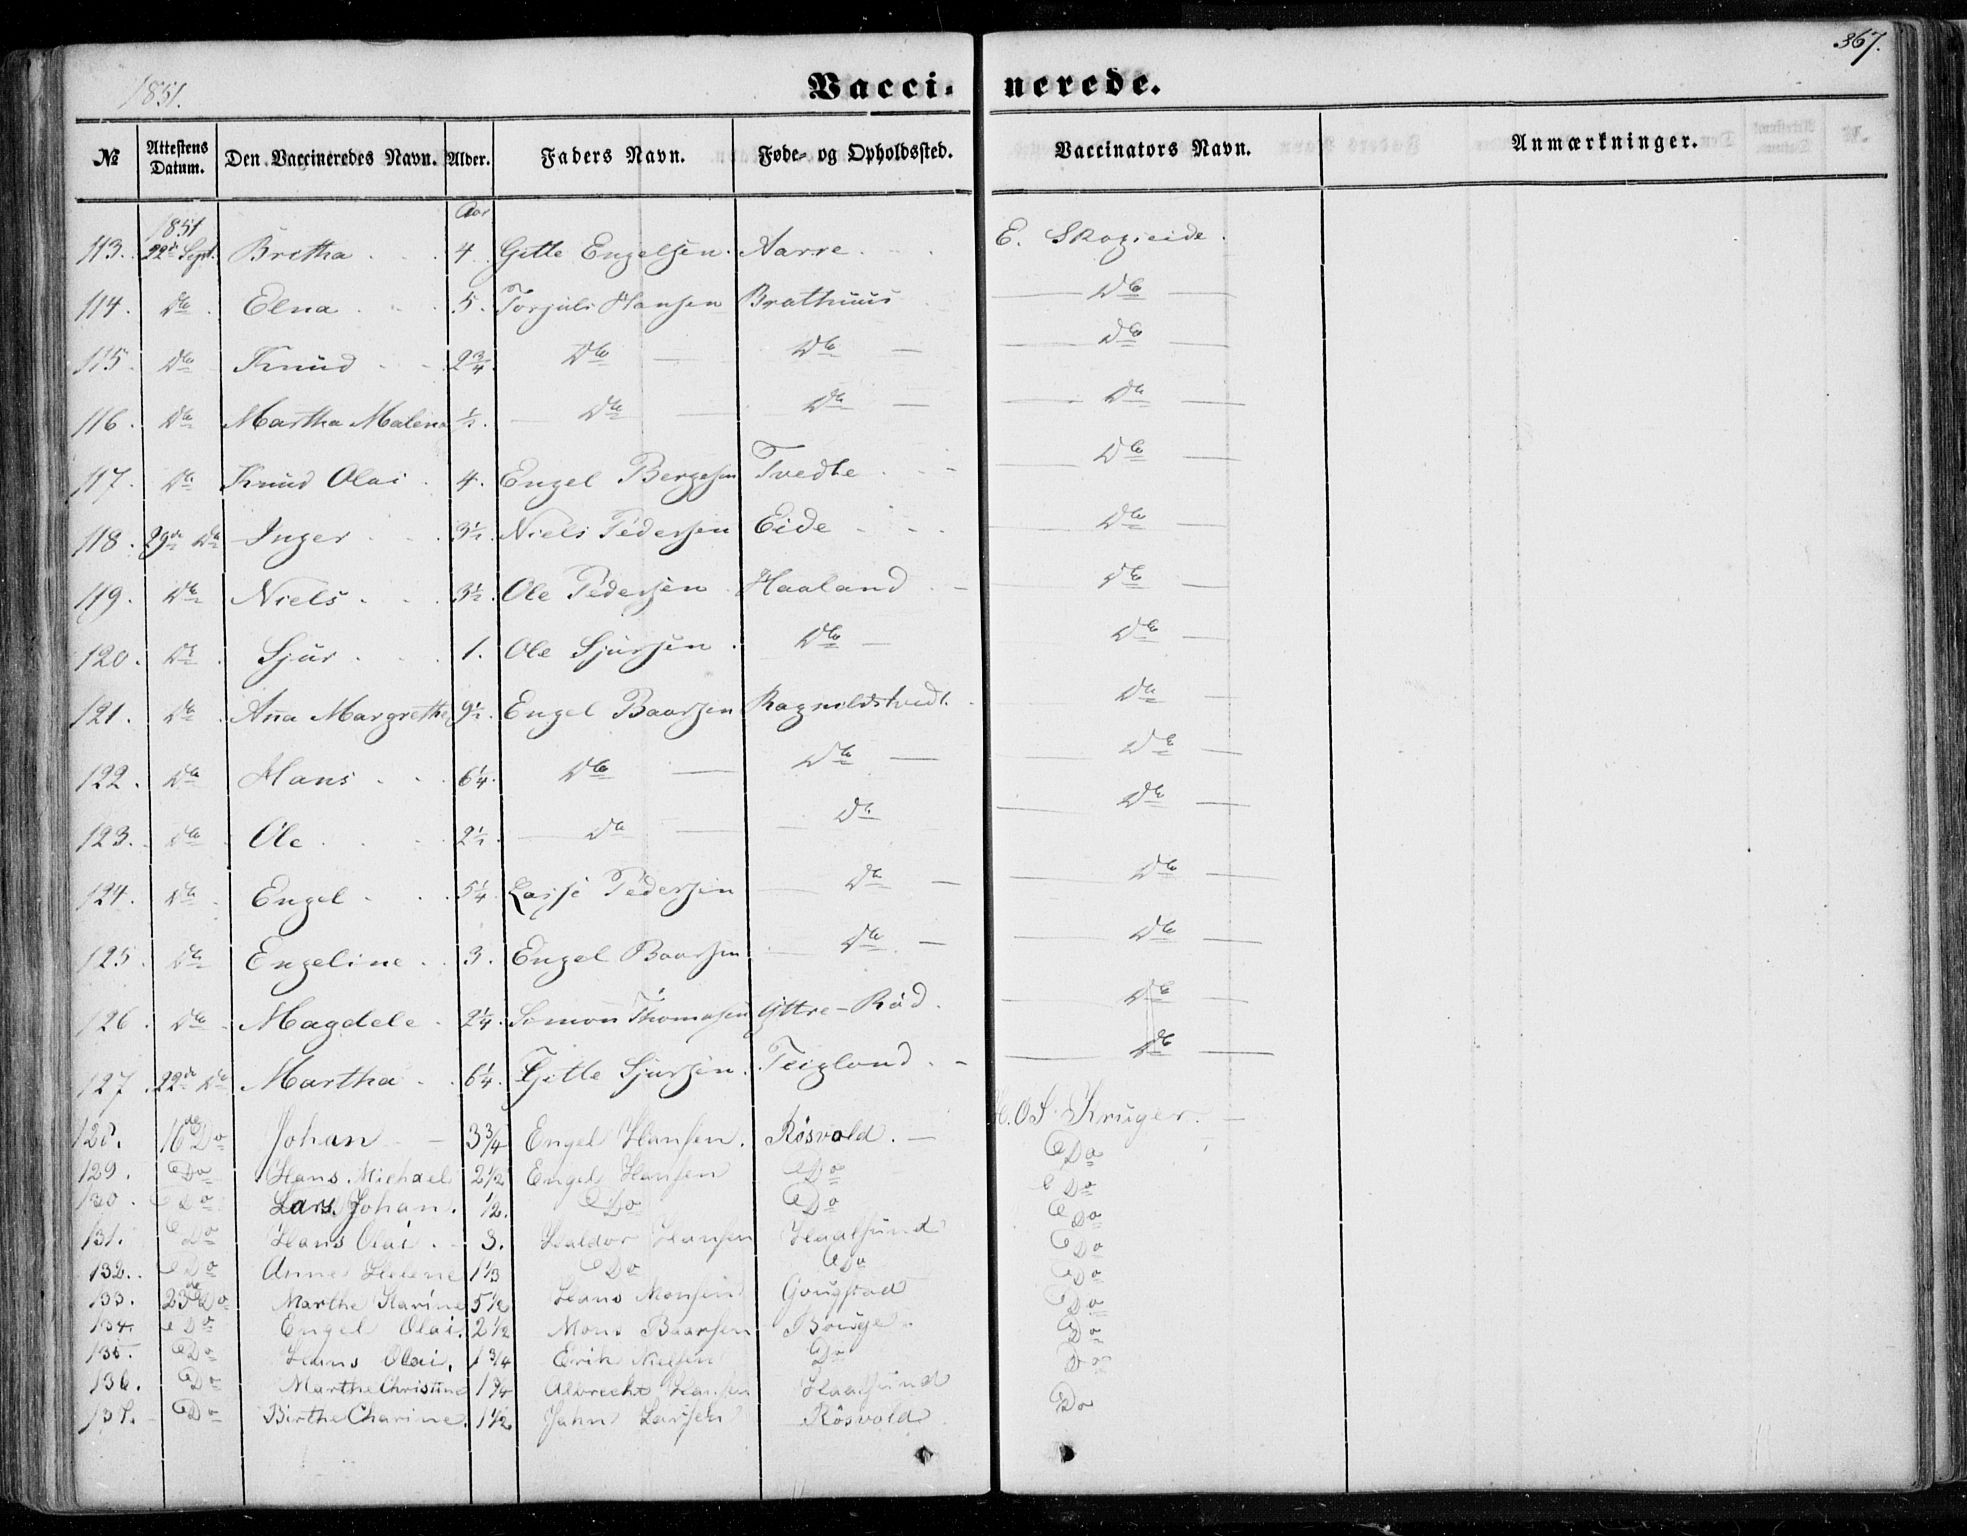 367.
1851.
Vacci- nerede.
№ Attestens Datum. Den Vaccineredes Navn. Alder. Faders Navn. Føde- og Opholdssted. Vaccinators Navn. Anmærkninger.
1851 Aar
113. 22de Sept. Bretha 4. Gitle Engelsen. Aarre. E. Skogseide.
114. Do. Elna 5. Torjuls Hansen Brathuus Do
115. Do Knud 2 3/4. Do Do Do
116. Do Martha Malena 1/2. Do Do Do
117. Do Knud Olai 4. Engel Bergesen Tvedte Do
118. 29de Do Inger 3 1/2. Niels Pedersen Eide Do
119. Do Niels 3 1/2. Ole Pedersen Haaland Do
120. Do Sjur 1. Ole Sjursen Do Do
121. Do Aña Margrethe 9 1/2. Engel Baarsen Ragnildstvedt. Do
122. Do Hans 6 1/4. Do Do Do
123. Do Ole 2 1/2. Do Do Do
124. Do Engel 5 1/4. Lasse Pedersen Do Do
125. Do Engeline 3. Engel Baarsen Do Do
126. Do Magdele 2 1/4. Simon Thomasen Yttre-Röd. Do
127. 22de Do Martha 6 1/4. Gitle Sjursen. Teigland Do
128. 16de Do Johan 3 3/4 Engel Hansen. Rösvold. H.O.S. Kruger.
129. Do Hans Michael 2 1/2 Engel Hansen Do Do
130. Do Lars Johan. 1/2. Do Do Do
131. Do Hans Olai. 3. Haldor Hansen Haalsund Do
132. Do Anne Helene 1 1/3 Do Do Do
133. 23de Do Marthe Karine 5 1/2 Hans Monsen Do
134. Do Engel Olai. 2 1/2 Mons Baarsen Do
135. Do Hans Olai. 1 3/4 Erik Nielsen Do Do
136. Do Marthe Christine 1 3/4 Albrecht Hansen Haalsund Do
137. Do Birthe Charine. 1 1/2 Jahn Larsen Rösvold Do